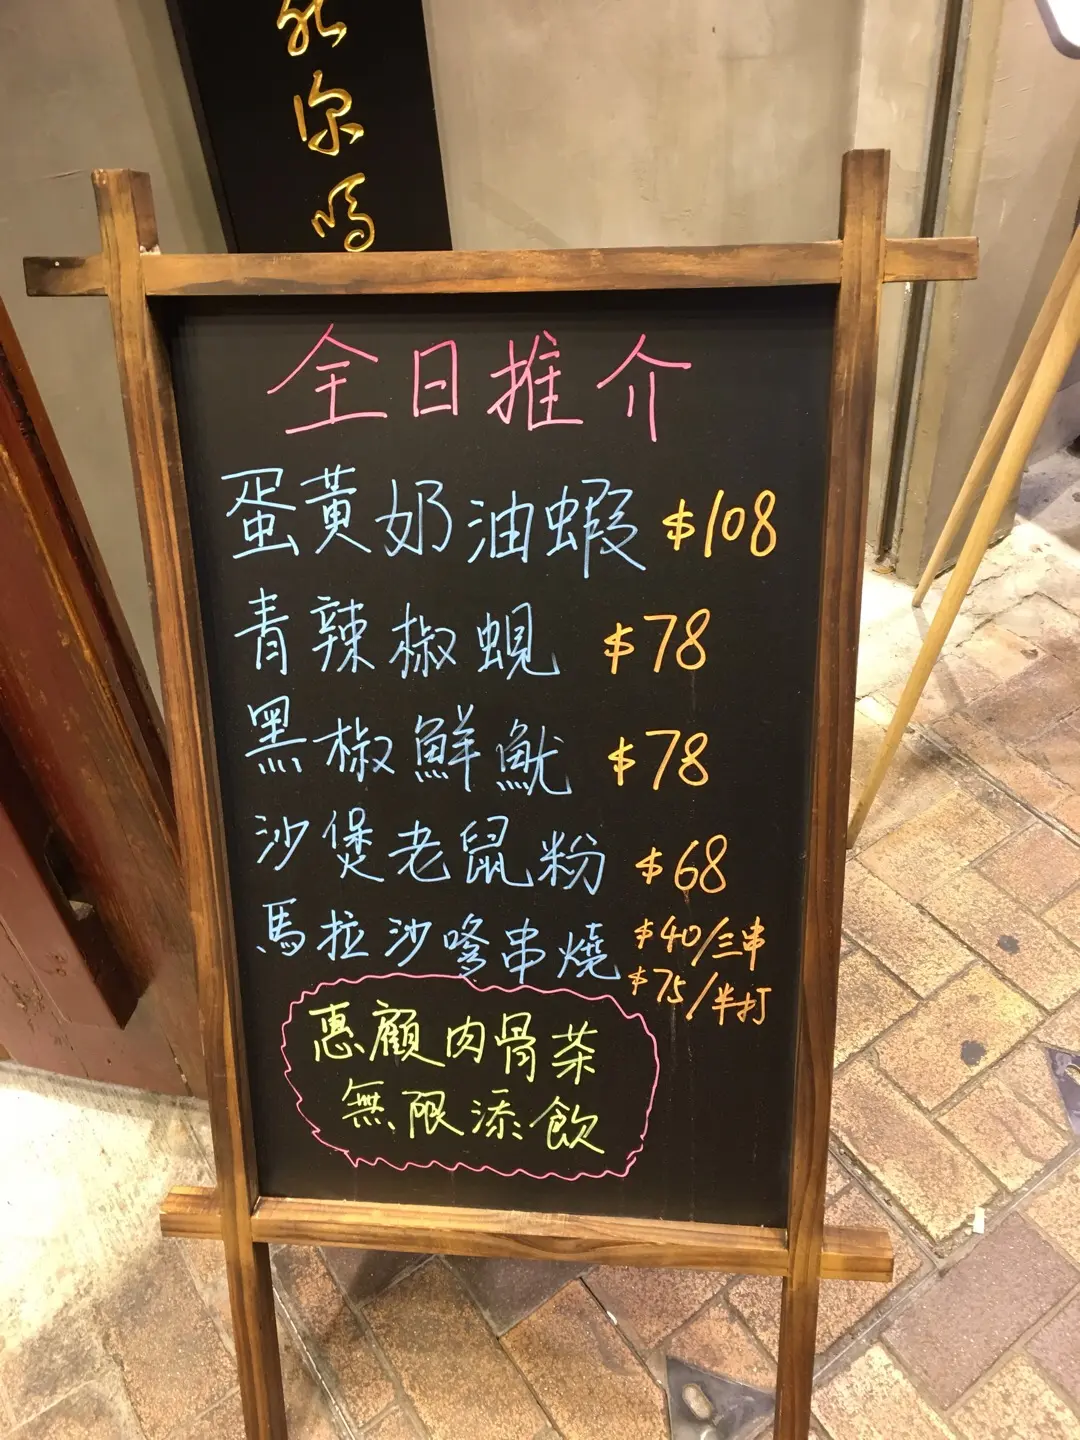 你嗎
全日推介
蛋黃奶油蝦 $108
青辣椒蜆 $78
黑椒鮮魷 $78
沙煲老鼠粉 $68
馬拉沙嗲串燒 $40/三串
$75/半打
惠顧肉骨茶
無限添飲